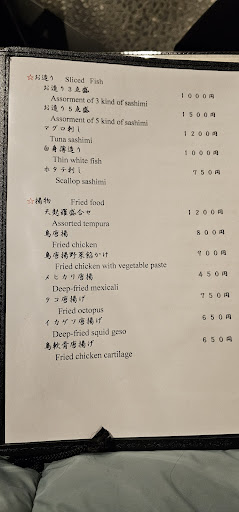 ☆お造り Sliced Fish
お造り3点盛 1000円
Assorment of 3 kind of sashimi
お造り5点盛 1500円
Assorment of 5 kind of sashimi
マグロ刺し 1200円
Tuna sashimi
白身薄造り 1000円
Thin white fish
ホタテ刺し 750円
Scallop sashimi
☆揚物 Fried food
天麩羅盛合せ 1200円
Assorted tempura
鳥唐揚 800円
Fried chicken
鳥唐揚野菜餡かけ 900円
Fried chicken with vegetable paste
メヒカリ唐揚 450円
Deep-fried mexicali
タコ唐揚げ 750円
Fried octopus
イカゲソ唐揚げ 650円
Deep-fried squid geso
鳥軟骨唐揚げ 650円
Fried chicken cartilage